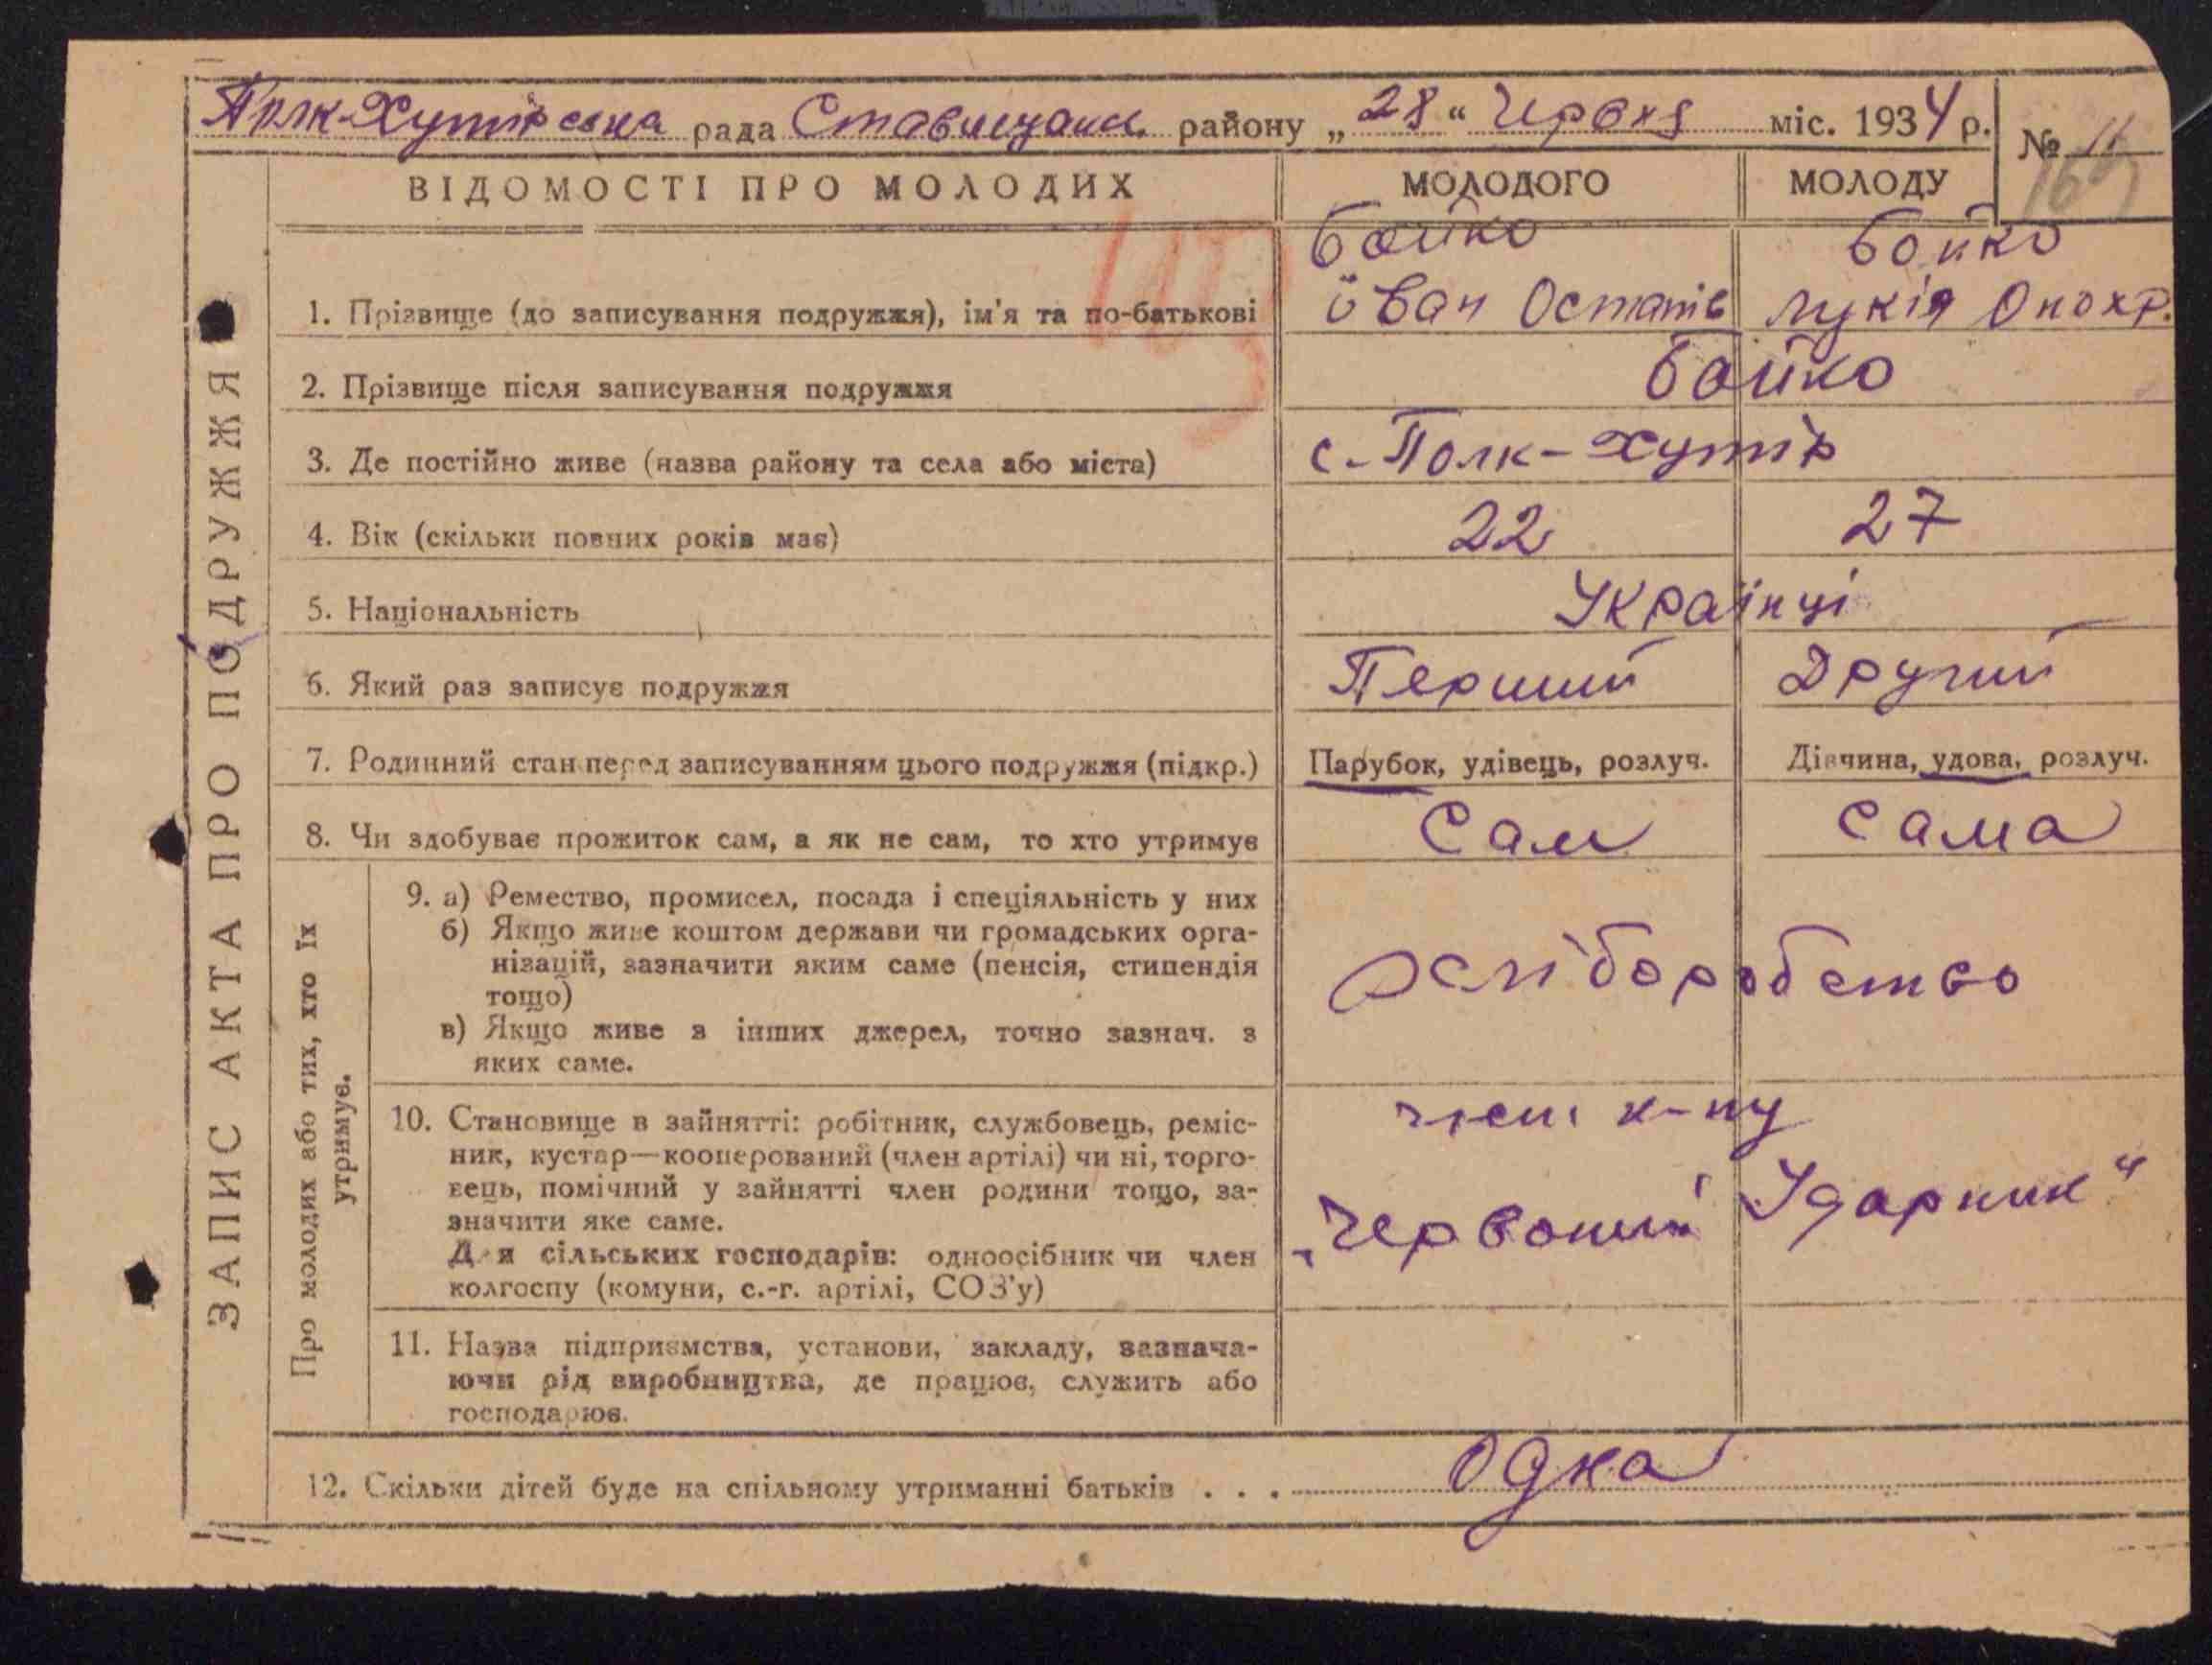 Полк-Хутірська рада Ставищан. району „28“ Червня міс. 1934 р.
№ 11
ВІДОМОСТІ ПРО МОЛОДИХ МОЛОДОГО МОЛОДУ
ЗАПИС АКТА ПРО ПОДРУЖЖЯ
Бойко Бойко
1. Прізвище (до записування подружжя), ім'я та по-батькові Іван Остапів Лукія Онохр.
2. Прізвище після записування подружжя Бойко
3. Де постійно живе (назва району та села або міста) с-Полк-Хутір
4. Вік (скільки повних років має) 22 27
5. Національність Українці
6. Який раз записує подружжя Перший Другий
7. Родинний стан перед записуванням цього подружжя (підкр.) Парубок, удівець, розлуч. Дівчина, удова, розлуч.
8. Чи здобуває прожиток сам, а як не сам, то хто утримує Сам Сама
Про молодих або тих, хто їх
утримує.
9. а) Ремество, промисел, посада і спеціяльність у них
б) Якщо живе коштом держави чи громадських орга-
нізацій, зазначити яким саме (пенсія, стипендія
тощо)
в) Якщо живе з інших джерел, точно зазнач. з
яких саме.
хліборобство
10. Становище в зайнятті: робітник, службовець, реміс-
ник, кустар—кооперований (член артілі) чи ні, торго-
вець, помічний у зайнятті член родини тощо, за-
значити яке саме.
Для сільських господарів: одноосібник чи член
колгоспу (комуни, с.-г. артілі, СОЗ'у)
член к-пу
„Червоний Ударник“
11. Назва підприємства, установи, закладу, зазнача-
ючи рід виробництва, де працює, служить або
господарює.
12. Скільки дітей буде на спільному утриманні батьків . . . одна